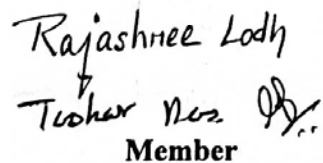 Rajashree Lodh
Tushar Das.
Member